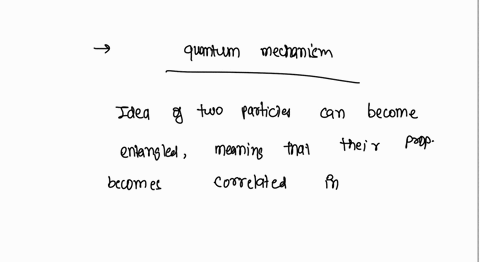 → quantum mechanism
Idea of two particles can become
entangled, meaning that their prop.
becomes correlated in